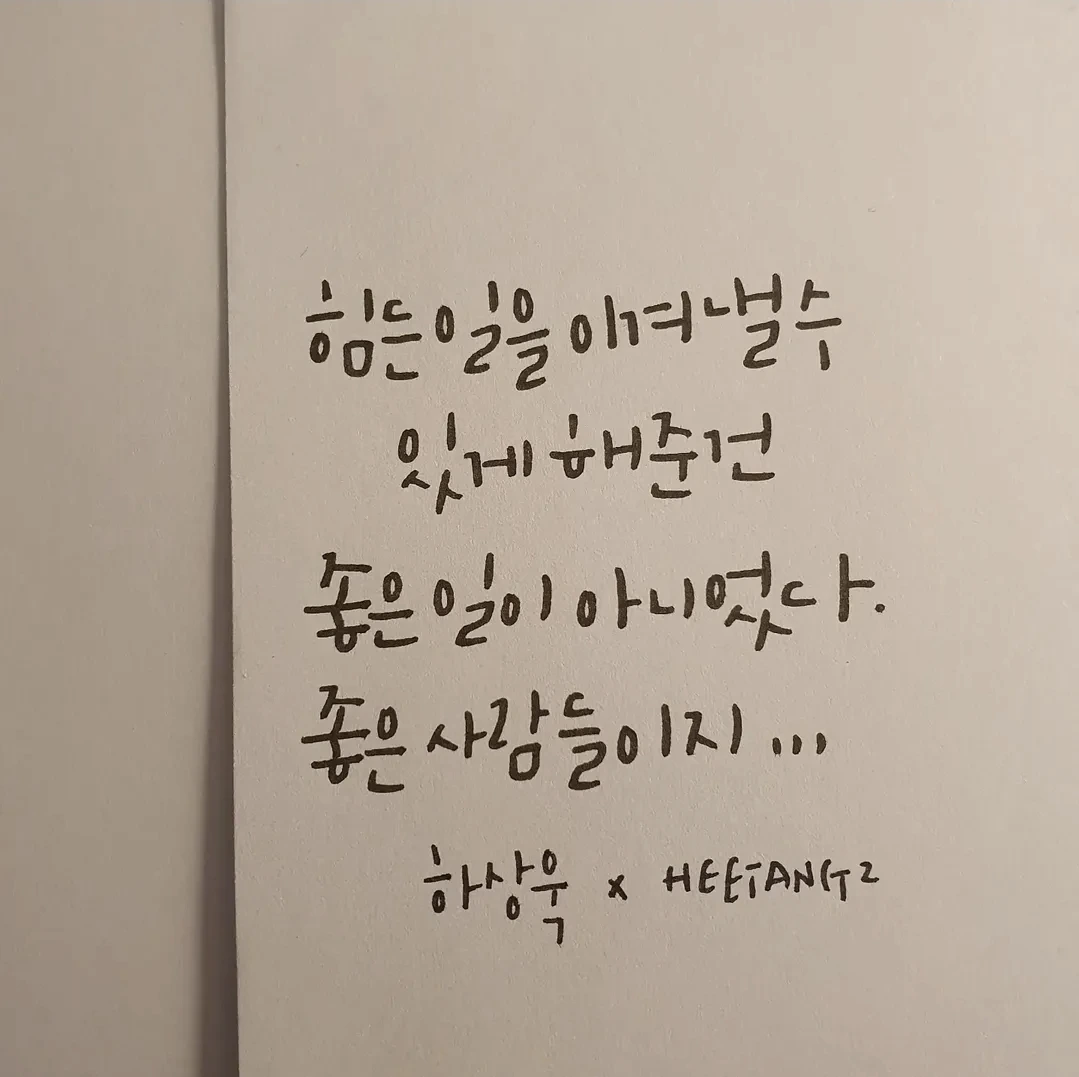 힘든 일을 이겨낼 수
있게 해준건
좋은 일이 아니었다.
좋은 사람들이지...
하상욱 x HEETANG2